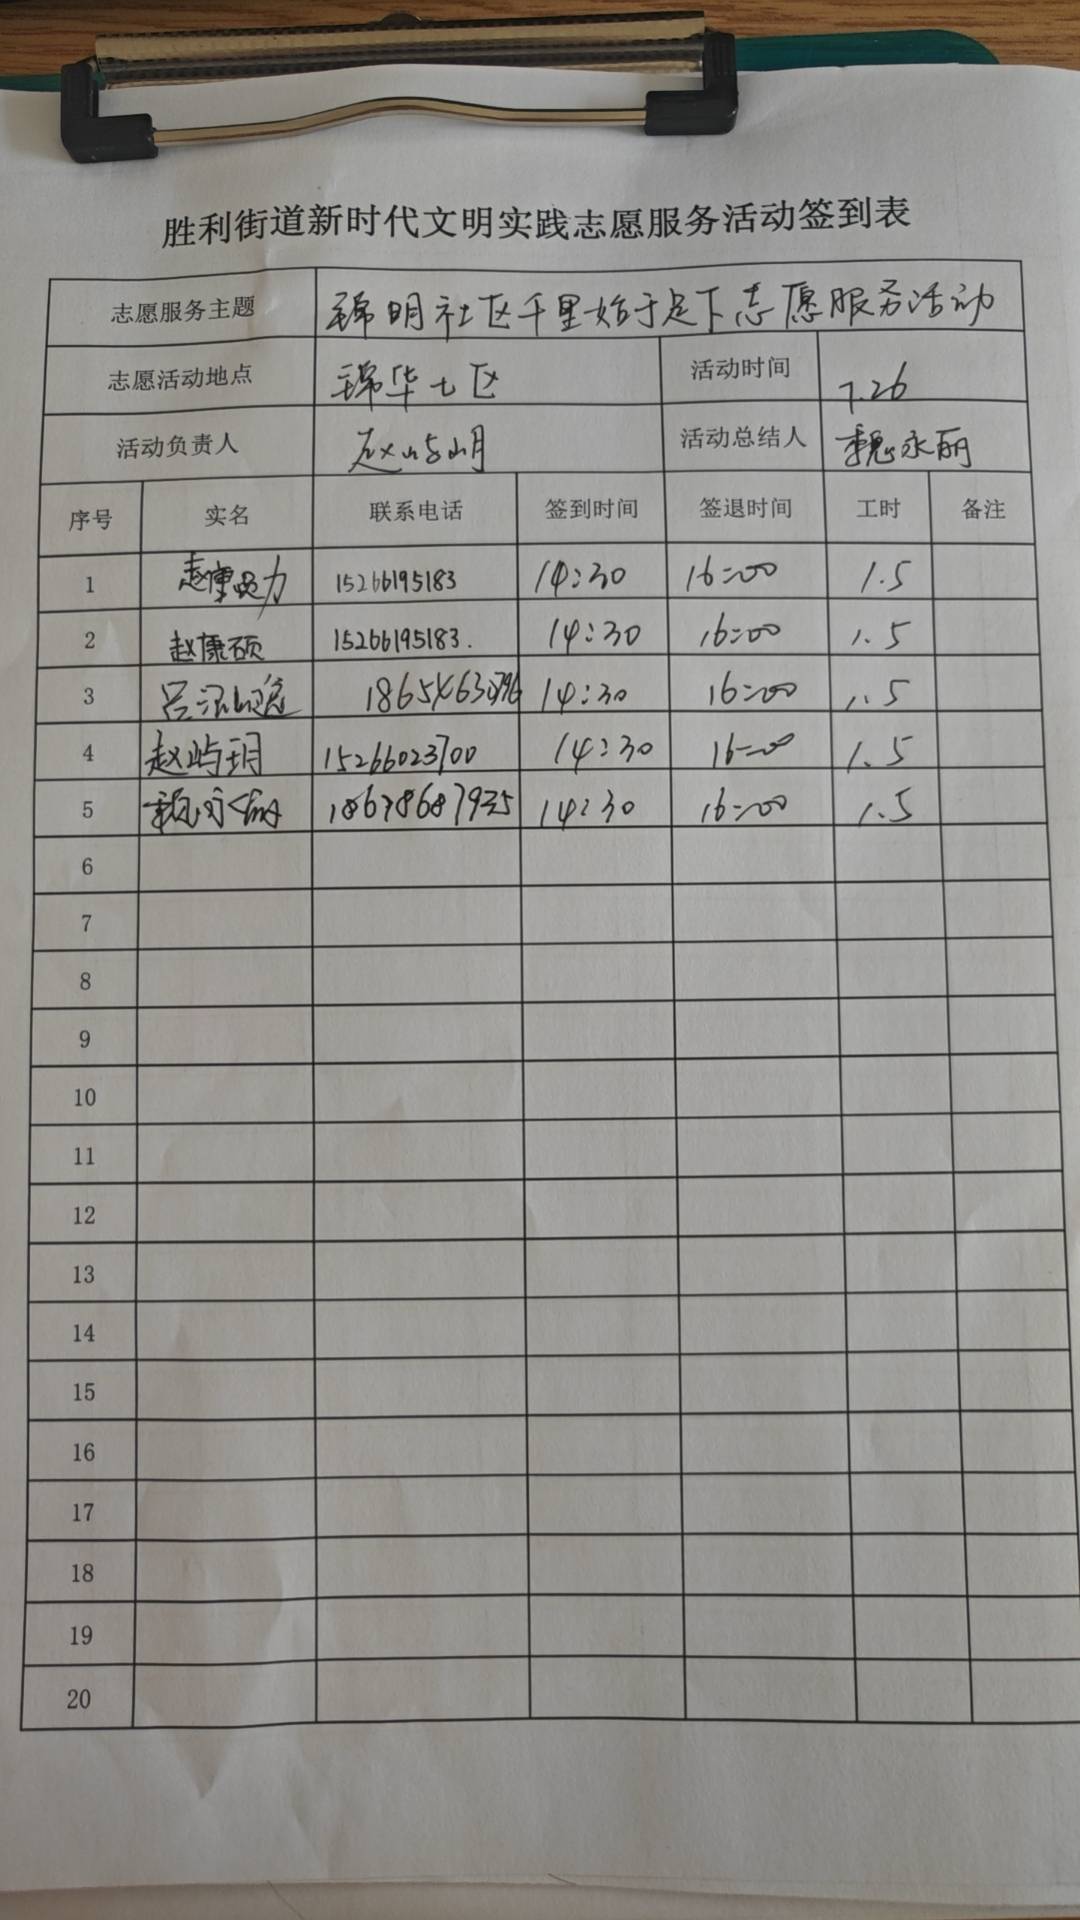 胜利街道新时代文明实践志愿服务活动签到表
志愿服务主题 锦明社区千里始于足下志愿服务活动
志愿活动地点 锦华七区 活动时间 7.26
活动负责人 赵屿明 活动总结人 魏永丽
序号 实名 联系电话 签到时间 签退时间 工时 备注
1 15266195183 14:30 16:00 1.5
2 赵康硕 15266195183. 14:30 16:00 1.5
3 14:30 16:00 1.5
4 赵屿玥 15266023700 14:30 16:00 1.5
5 18678687935 14:30 16:00 1.5
6
7
8
9
10
11
12
13
14
15
16
17
18
19
20